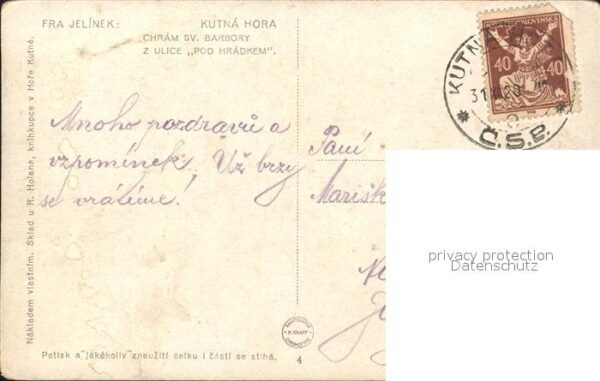 FRA JELÍNEK:
KUTNÁ HORA
CHRÁM SV. BARBORY
Z ULICE „POD HRÁDKEM“.
Nákladem vlastním. Sklad u R. Holana, knihkupce v Hoře Kutné.
Mnoho pozdravů a
vzpomínek. Už brzy
se vrátíme!
Paní
Marišk
privacy protection
Datenschutz
KUTNÁ
40 40
Č.S.P.
Patisk a jakékoliv zneužití celku i části se stíhá.
4